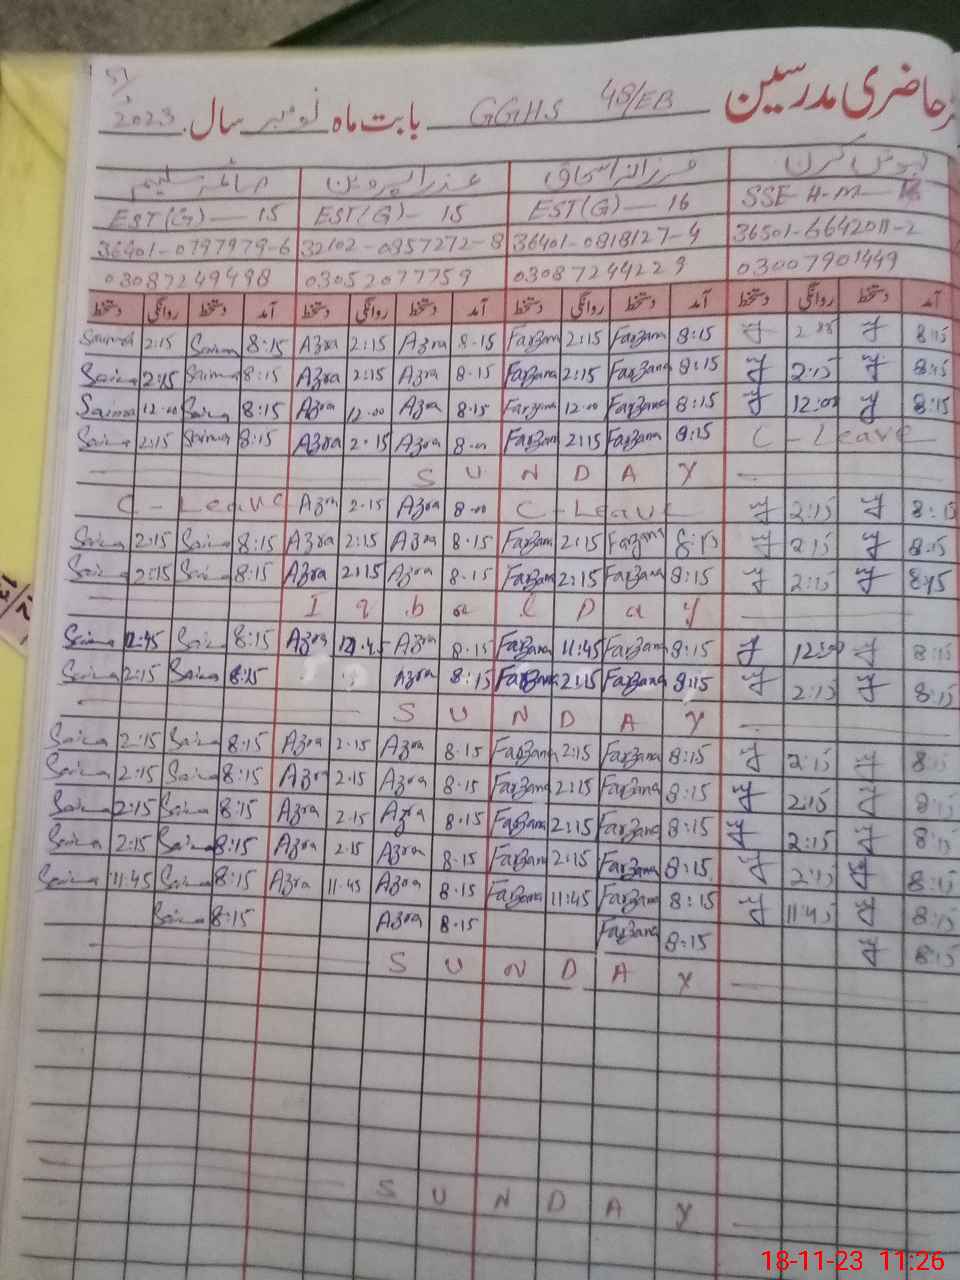 حاضری مدرسین GGHS 48/EB بابت ماہ نومبر سال 2023
صائمہ سلیم عذرا پروین فرزانہ اسحاق کرن
EST(G) — 15 EST(G) - 15 EST(G) — 16 SSE H.M
36401-0797979-6 32102-0957272-8 36401-0818127-4 36501-6642011-2
03087249498 03052077759 03087244229 03007901449
دستخط روانگی دستخط آمد دستخط روانگی دستخط آمد دستخط روانگی دستخط آمد دستخط روانگی دستخط آمد
Saima 2:15 Saima 8:15 Azra 2:15 Azra 8.15 Farzana 2:15 Farzana 8:15 8:15
Saima 2:15 Saima 8:15 Azra 2:15 Azra 8.15 Farzana 2:15 Farzana 8:15 2:15 8:15
Saima 12.00 Saima 8:15 Azra 12.00 Azra 8.15 Farzana 12.00 Farzana 8:15 12:00 8:15
Saima 2:15 Saima 8:15 Azra 2.15 Azra Farzana 2:15 Farzana 8:15 C - Leave
S U N D A Y
C - Leave Azra 2.15 Azra C - Leave 2:15 8:15
Saima 2:15 Saima 8:15 Azra 2:15 Azra 8.15 Farzana 2:15 Farzana 8:15 2:15 8:15
Saima 2:15 Saima 8:15 Azra 2:15 Azra 8.15 Farzana 2:15 Farzana 8:15 2:15 8:15
Iqbal Day
Saima 12:45 Saima 8:15 Azra 12.45 Azra 8.15 Farzana 11:45 Farzana 8:15 8:15
Saima 2:15 Saima 8:15 Azra 8.15 Farzana 2:15 Farzana 8:15 2:15 8:15
S U N D A Y
Saima 2:15 Saima 8:15 Azra 2.15 Azra 8.15 Farzana 2:15 Farzana 8:15 2:15 8:15
Saima 2:15 Saima 8:15 Azra 2.15 Azra 8.15 Farzana 2:15 Farzana 8:15 2:15 8:15
Saima 2:15 Saima 8:15 Azra 2.15 Azra 8.15 Farzana 2:15 Farzana 8:15 2:15 8:15
Saima 2:15 Saima 8:15 Azra 2.15 Azra 8.15 Farzana 2:15 Farzana 8:15 2:15 8:15
Saima 11:45 Saima 8:15 Azra 11.45 Azra 8.15 Farzana 11:45 Farzana 8:15 11:45 8:15
Saima 8:15 Azra 8.15 Farzana 8:15 8:15
S U N D A Y
S U N D A Y
18-11-23 11:26